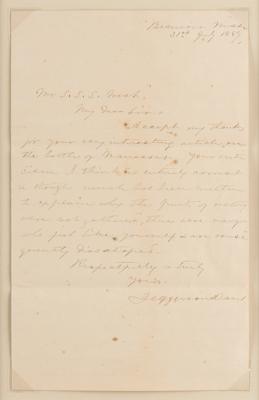 Beauvoir Miss.
31st July 1887
Mr. S.S.S.
My Dear Sir.
Accept my thanks
for your very interesting article on
the battle of Manassas. Your criti-
cism I think is entirely correct
& though much has been written
to explain why the fruits of victory
were not gathered, there are many
who just like yourself
quently
Respectfully & truly
Yours
Jefferson Davis